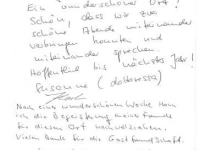 Ein wunderschöner Ort!
Schön, dass wir zwei
schöne Abende miteinander
verbringen konnten und
miteinander sprechen.
Hoffentlich bis nächstes Jahr!
Susanne (dottoressa)
Nach einer wunderschönen Woche kann
ich die Begeisterung meiner Freunde
für diesen Ort nachvollziehen.
Vielen Dank für die Gastfreundschaft.